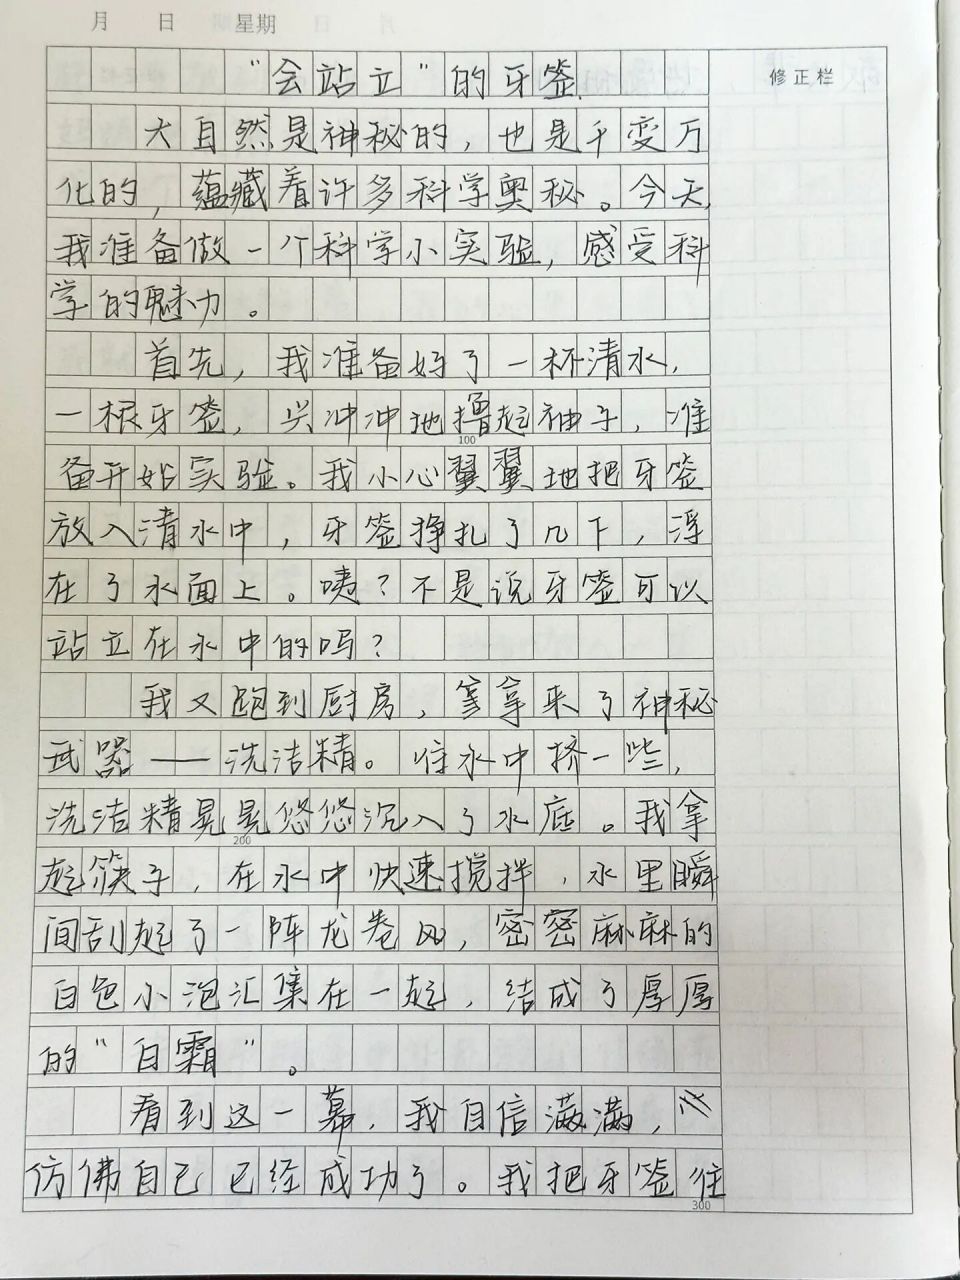 月 日 星期
"会站立"的牙签
修正栏
大自然是神秘的，也是千变万
化的，蕴藏着许多科学奥秘。今天，
我准备做一个科学小实验，感受科
学的魅力。
首先，我准备好了一杯清水，
一根牙签，兴冲冲地撸起袖子，准
100
备开始实验。我小心翼翼地把牙签
放入清水中，牙签挣扎了几下，浮
在了水面上。咦？不是说牙签可以
站立在水中的吗？
我又跑到厨房，拿来了神秘
武器——洗洁精。往水中挤一些，
洗洁精晃晃悠悠沉入了水底。我拿
200
起筷子，在水中快速搅拌，水里瞬
间刮起了一阵龙卷风，密密麻麻的
白色小泡汇集在一起，结成了厚厚
的"白霜"。
看到这一幕，我自信满满，
仿佛自己已经成功了。我把牙签往
300